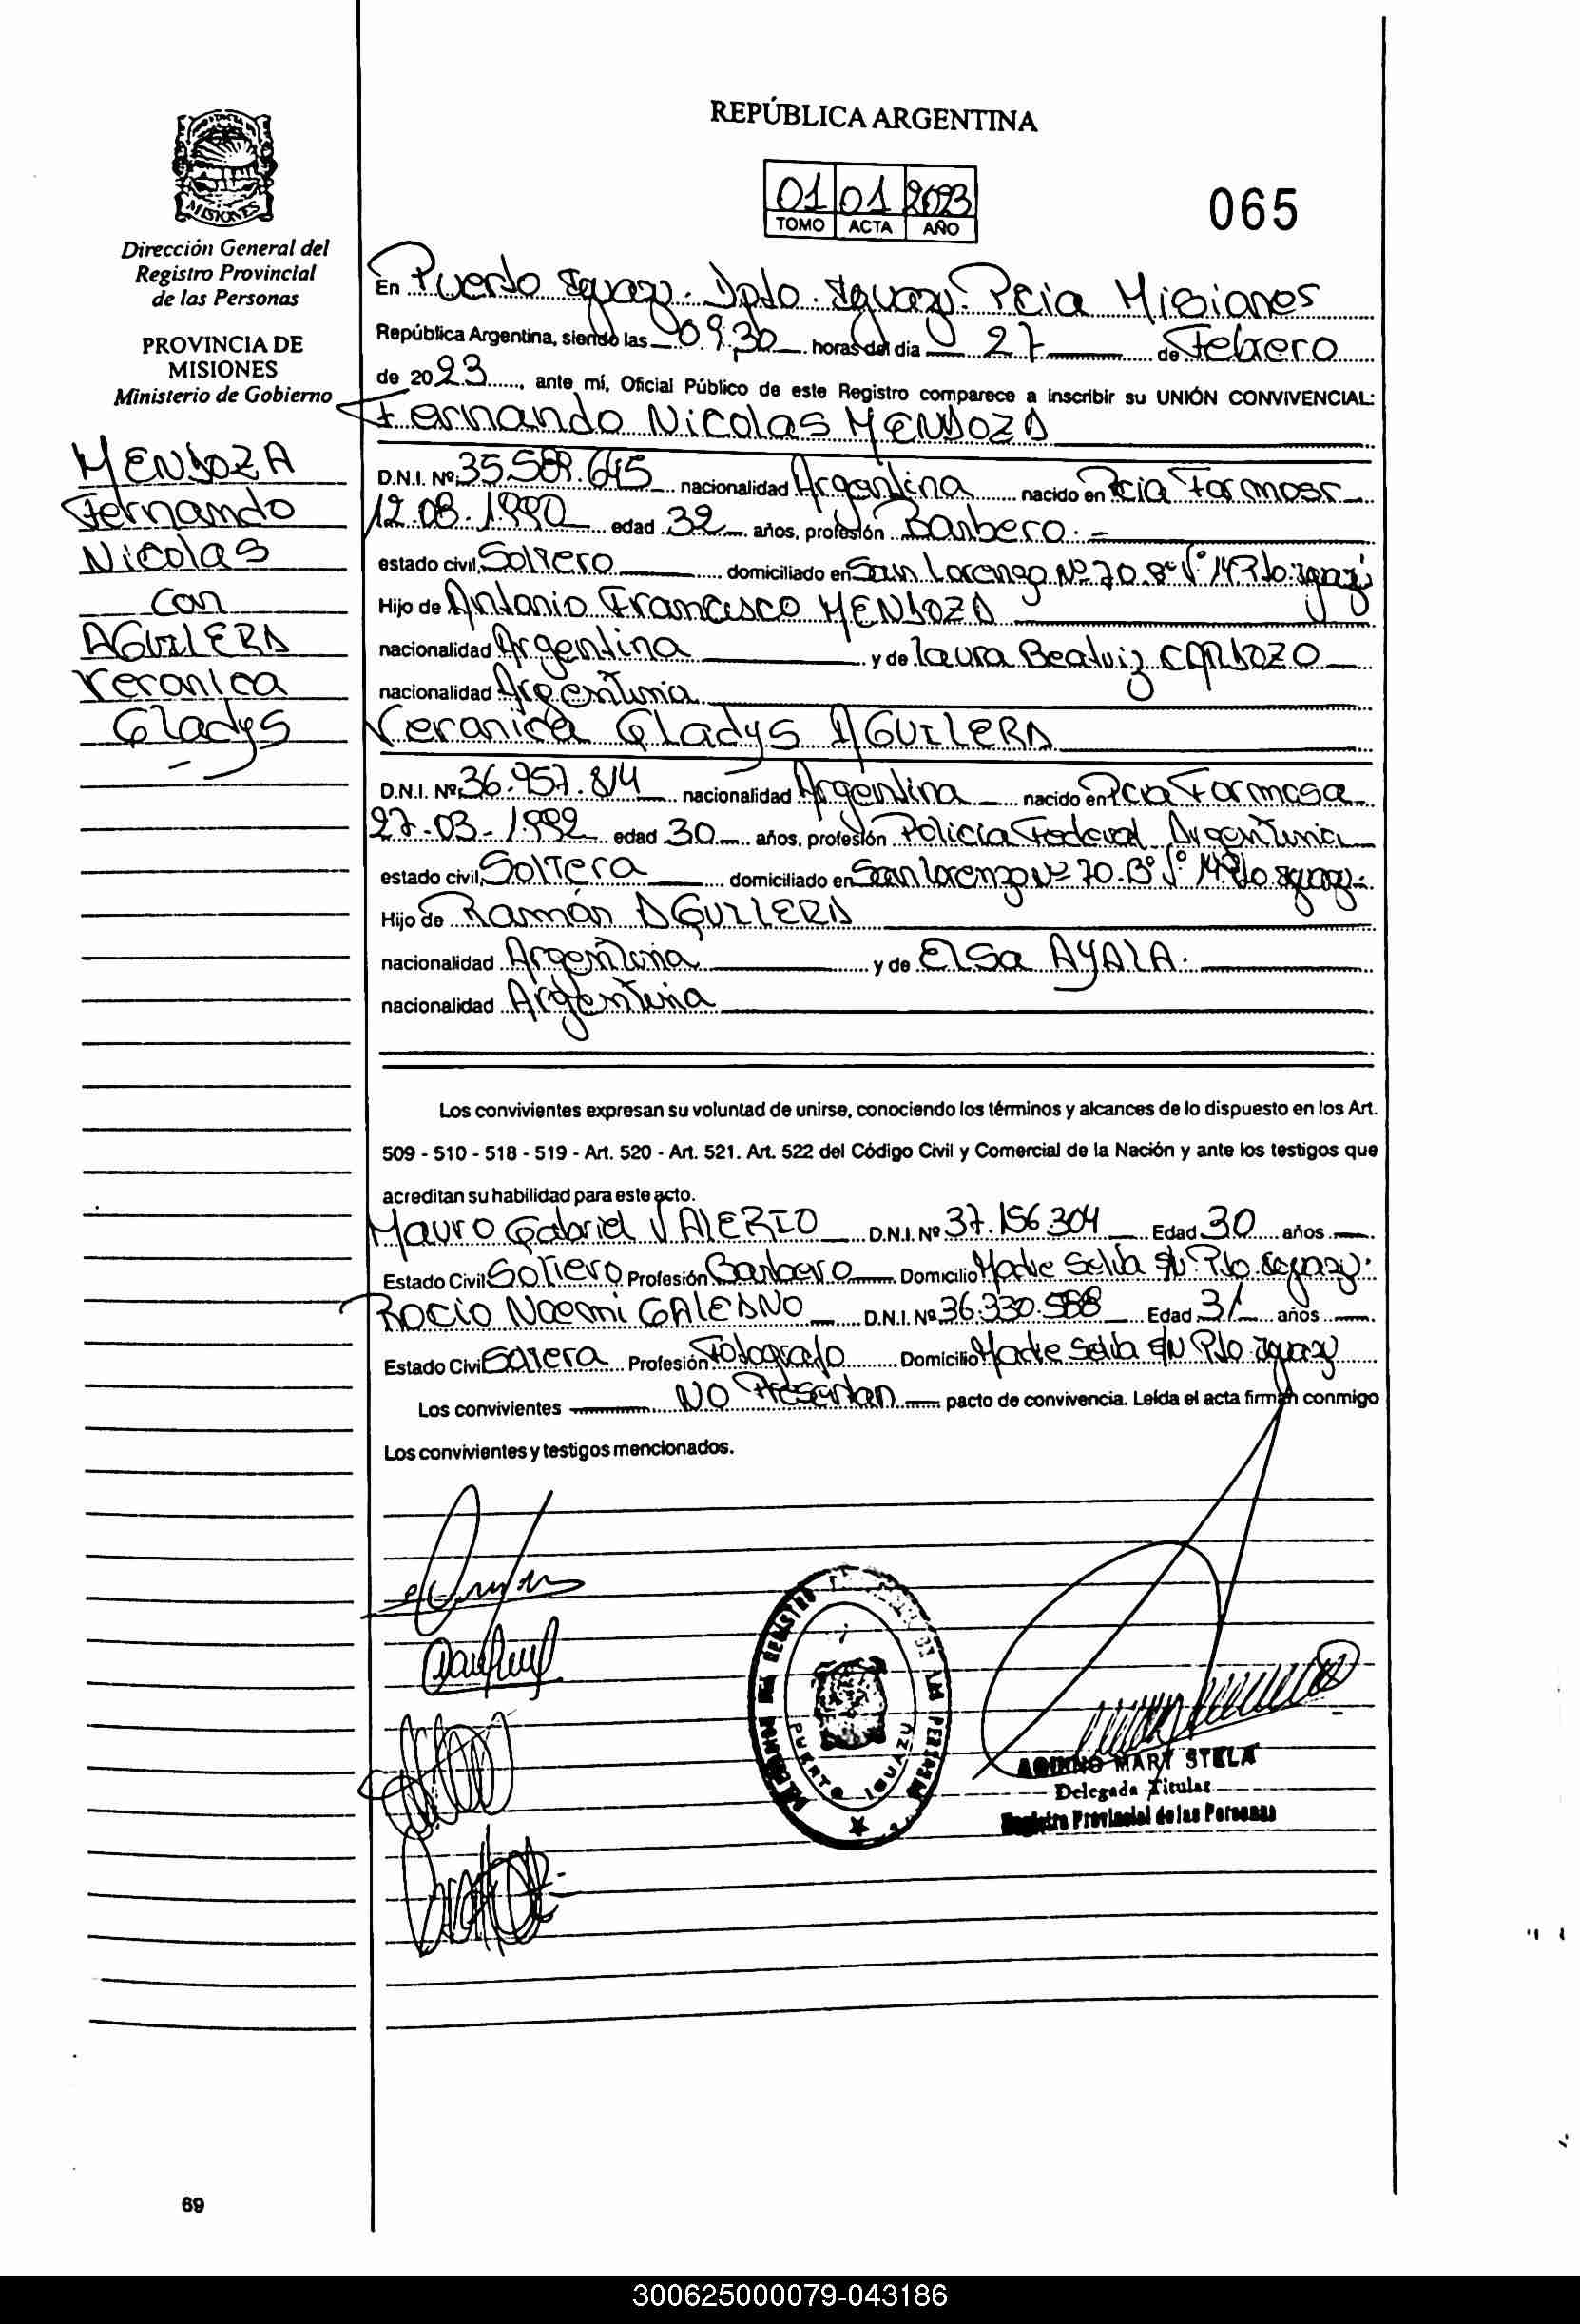 REPÚBLICA ARGENTINA
01 01 2023
TOMO ACTA AÑO
065
MISIONES
Dirección General del
Registro Provincial
de las Personas
PROVINCIA DE
MISIONES
Ministerio de Gobierno
MENDOZA
Fernando
Nicolas
con
AGUILERA
Veronica
Gladys
En Puerto Iguazu. Dpto. Iguazu. Pcia Misiones
República Argentina, siendo las 09:30 horas del dia 27 de Febrero
de 2023, ante mí, Oficial Público de este Registro comparece a inscribir su UNIÓN CONVIVENCIAL:
Fernando Nicolas MENDOZA
D.N.I. Nº 35.589.645 nacionalidad Argentina nacido en Pcia Formosa
12.08.1990 edad 32 años, profesión Barbero.-
estado civil, Soltero domiciliado en San Lorenzo Nº 70. Bº Vº 14 Pto. Iguazú
Hijo de Antonio Francisco MENDOZA
nacionalidad Argentina y de Laura Beatriz CARDOZO
nacionalidad Argentina
Veronica Gladys AGUILERA
D.N.I. Nº 36.957.814 nacionalidad Argentina nacido en Pcia Formosa
27-03-1992 edad 30 años, profesión Policia Federal Argentina
estado civil, Soltera domiciliado en San Lorenzo Nº 70. Bº Vº 14 Pto. Iguazu.
Hijo de Ramón AGUILERA
nacionalidad Argentina y de Elsa AYALA.
nacionalidad Argentina
Los convivientes expresan su voluntad de unirse, conociendo los términos y alcances de lo dispuesto en los Art.
509 - 510 - 518 - 519 - Art. 520 - Art. 521. Art. 522 del Código Civil y Comercial de la Nación y ante los testigos que
acreditan su habilidad para este acto.
Mauro Gabriel VALERIO D.N.I. Nº 37.156.304 Edad 30 años
Estado Civil Soltero Profesión Barbero Domicilio Madre Selva s/n Pto. Iguazu.
Rocio Noemi GALEANO D.N.I. Nº 36.330.588 Edad 31 años
Estado Civil Soltera Profesión Fotografo Domicilio Madre Selva s/N Pto Iguazu
Los convivientes NO Presentan pacto de convivencia. Leída el acta firman conmigo
Los convivientes y testigos mencionados.
PUERTO IGUAZU
AQUINO MARY STELA
Delegada Titular
Registro Provincial de las Personas
69
300625000079-043186